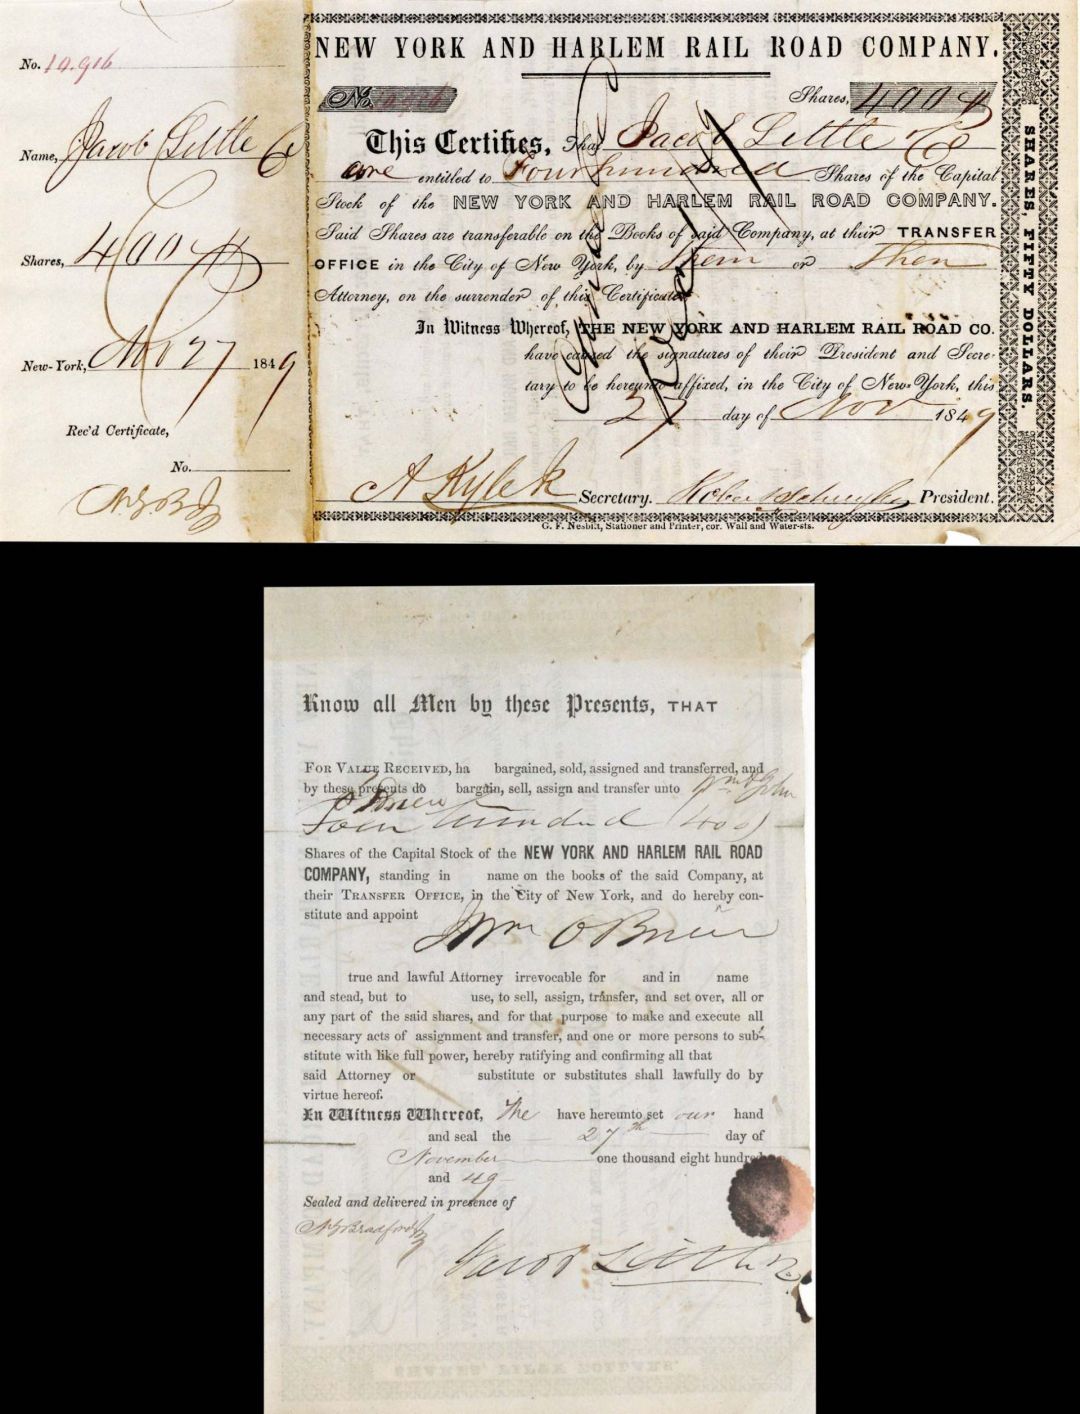 No. 10.916
Name, Jacob Little & Co
Shares, 400
New-York, Nov 27 1849
Rec'd Certificate,
No.
NEW YORK AND HARLEM RAIL ROAD COMPANY.
No. 10916
Shares, 400
This Certifies, That Jacob Little & Co
are entitled to Four hundred Shares of the Capital
Stock of the NEW YORK AND HARLEM RAIL ROAD COMPANY.
Said Shares are transferable on the Books of said Company, at their TRANSFER
OFFICE in the City of New York, by Them or Their
Attorney, on the surrender of this Certificate.
In Witness Whereof, THE NEW YORK AND HARLEM RAIL ROAD CO.
have caused the signatures of their President and Secre-
tary to be hereunto affixed, in the City of New-York, this
27 day of Nov 1849
Secretary. President.
G. F. Nesbitt, Stationer and Printer, cor. Wall and Water-sts.
SHARES, FIFTY DOLLARS.
Cancelled
Know all Men by these Presents, THAT
FOR VALUE RECEIVED, ha bargained, sold, assigned and transferred, and
by these presents do bargain, sell, assign and transfer unto Wm & John
O'Brien
Four Hundred (400)
Shares of the Capital Stock of the NEW YORK AND HARLEM RAIL ROAD
COMPANY, standing in name on the books of the said Company, at
their TRANSFER OFFICE, in the City of New York, and do hereby con-
stitute and appoint
Wm O'Brien
true and lawful Attorney irrevocable for and in name
and stead, but to use, to sell, assign, transfer, and set over, all or
any part of the said shares, and for that purpose to make and execute all
necessary acts of assignment and transfer, and one or more persons to sub-
stitute with like full power, hereby ratifying and confirming all that
said Attorney or substitute or substitutes shall lawfully do by
virtue hereof.
In Witness Whereof, We have hereunto set our hand
and seal the 27th day of
November one thousand eight hundred
and 49
Sealed and delivered in presence of
N G Bradford Jr
Jacob Little & Co